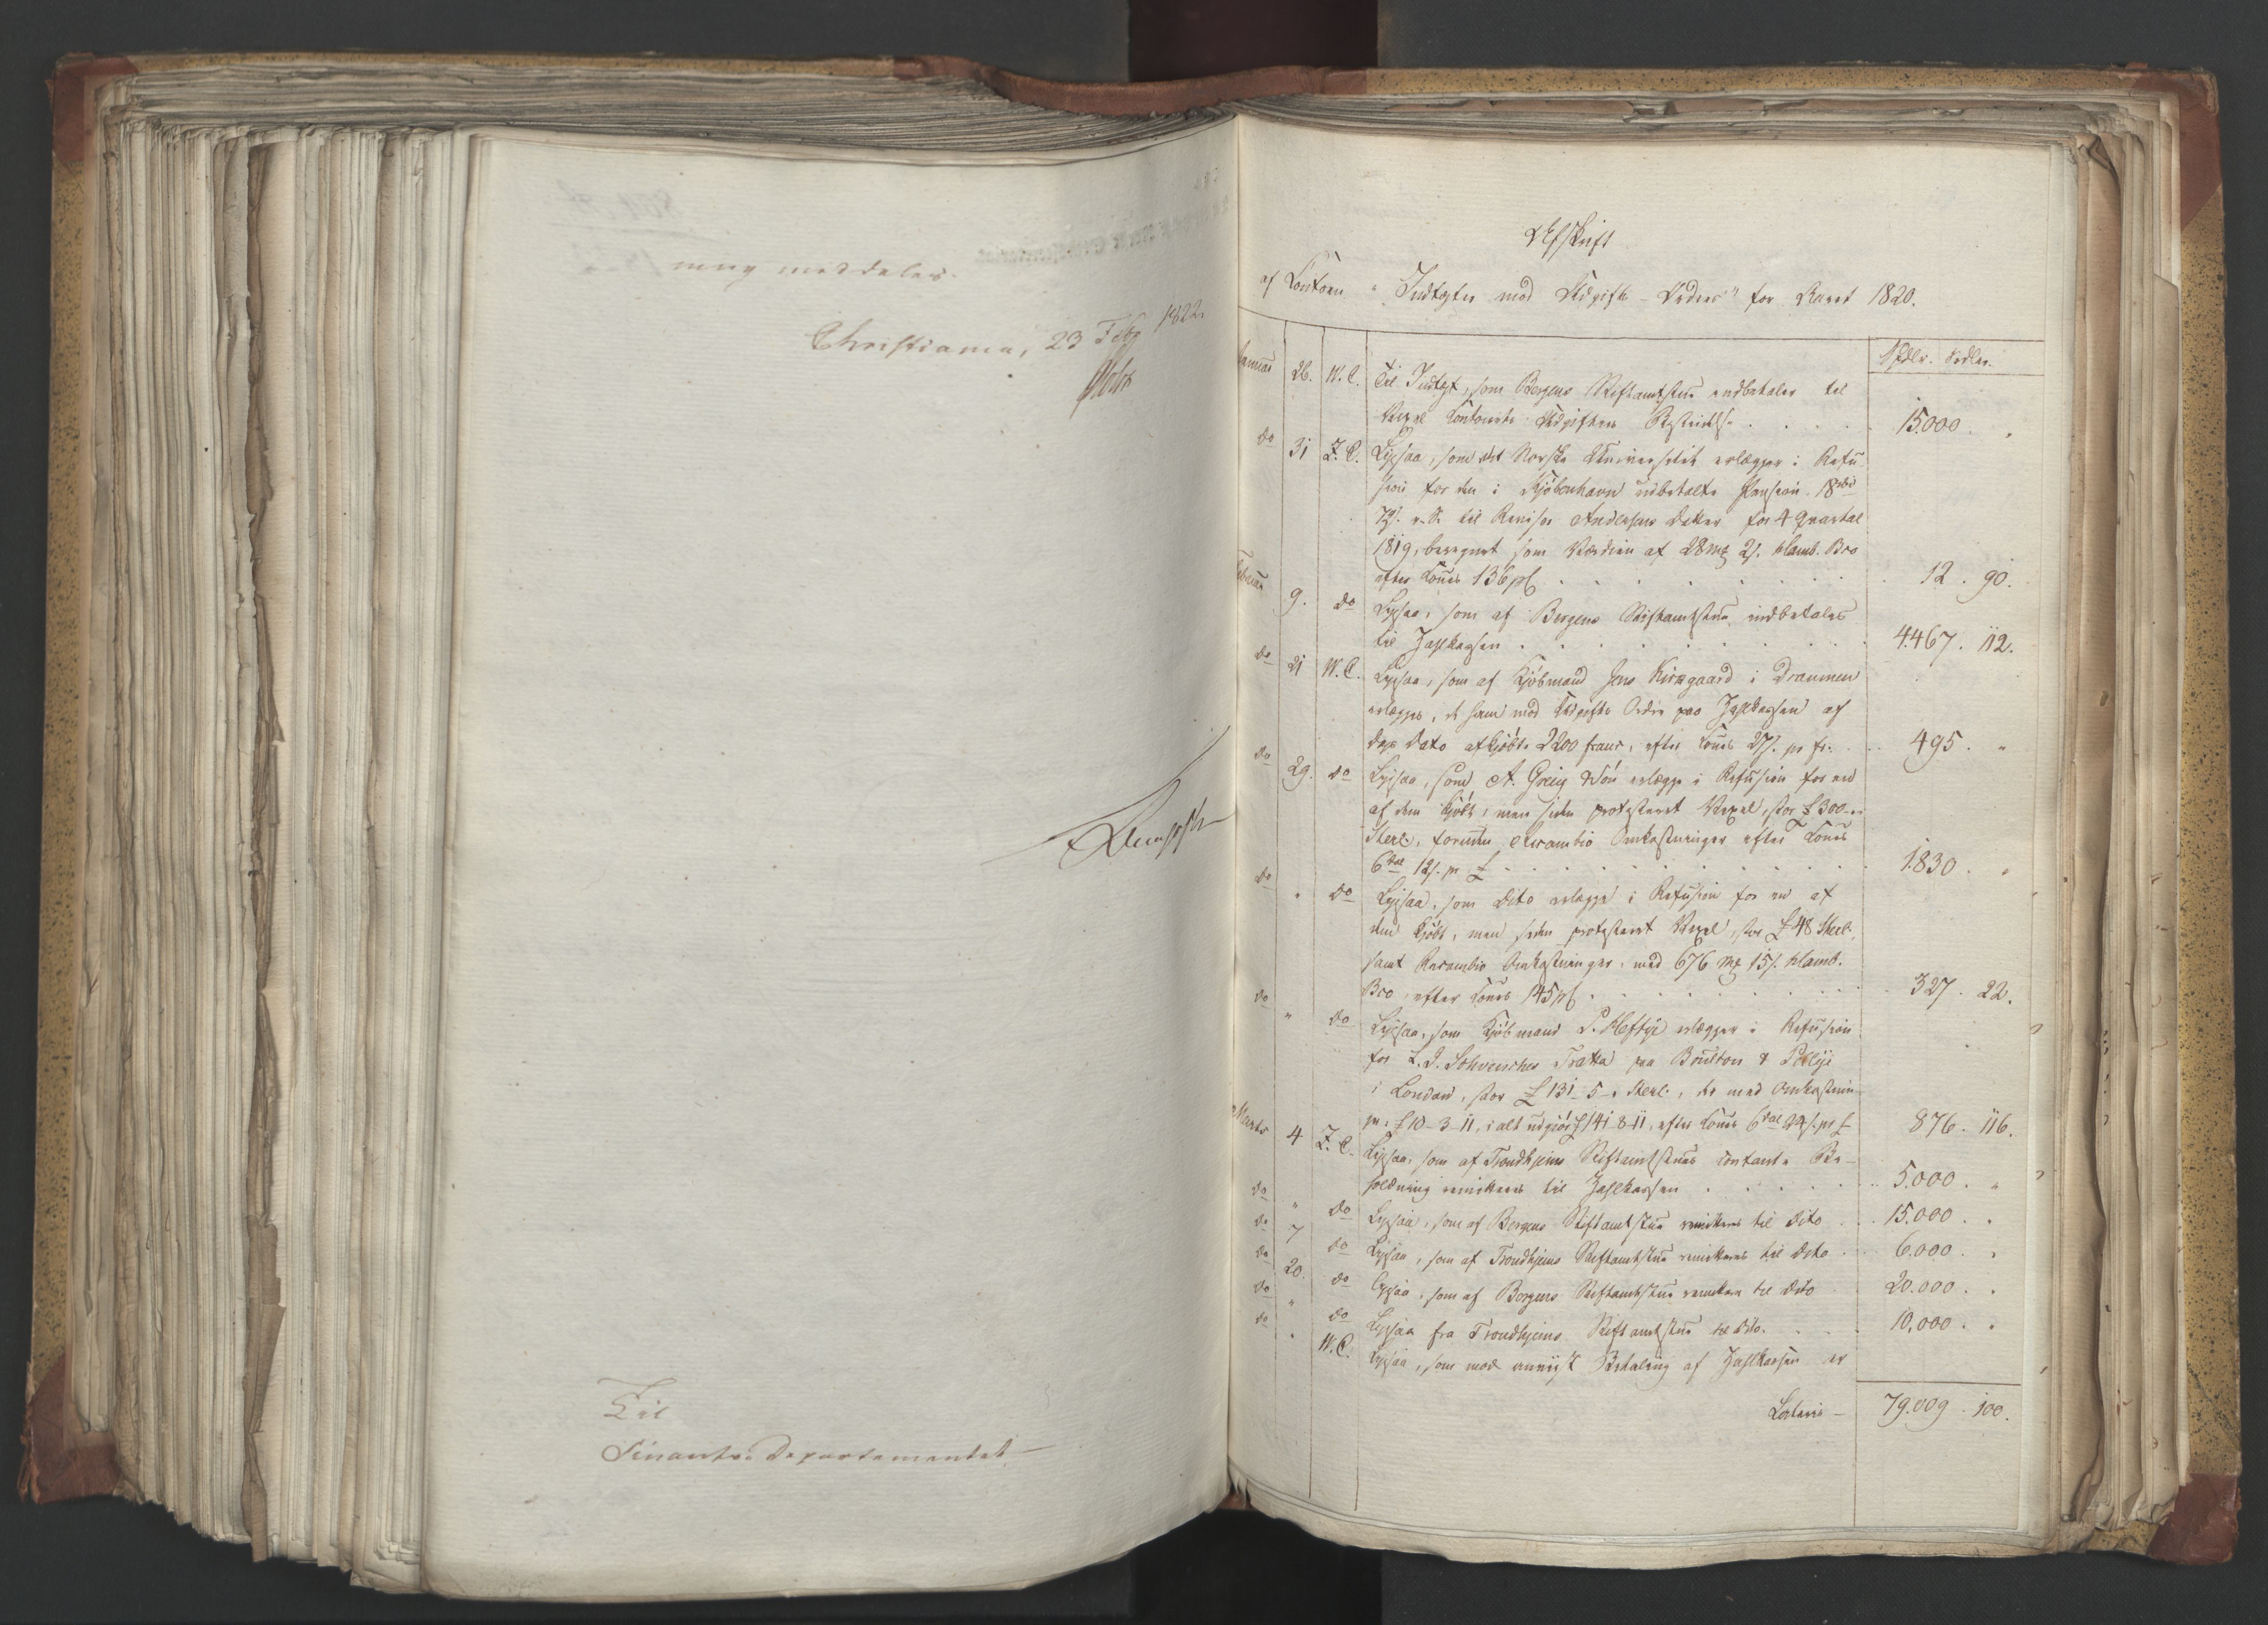 maa meddeles.
Christiania, 23 Feb 1822.
Holst
Til
Finants-Departementet
Afskrift
af Contoen "Indtægter mod Udgifts-Ordrer" for Aaret 1820.
Spdlr. Skler.
Januar 26. W.C. Til Indtægt, som Bergens Stiftamtstue indbetaler til
Vexel Contoirets Udgifters Bestridelse . . . . 15.000 . "
do 31 Z.C. Ligesaa, som det Norske Universitet erlægger i Refu-
sion for den i Kjöbenhavn udbetalte Pension 18 rbd
72 s. r. S. til Revisor Andersens Datter for 4 Quartal
1819, beregnet som Værdien af 28 mk 2 s. Hamb. Bco
efter Cours 136 pC . . . . 12 . 90.
Februar 9. do Ligesaa, som af Bergens Stiftamtstue indbetales
til Zahlkassen . . . . 4.467 . 112.
do 21 W.C. Ligesaa, som af Kjöbmand Jens Kirægaard i Drammen
erlægges, de ham mod Udgifts Ordre paa Zahlkassen af
Dags Dato afkjöbte 2200 franc, efter Cours 27 s. pr fr. . . 495 . "
do 29. do Ligesaa, som A. Grieg & Sön erlægge i Refusion for en
af dem kjöbt, men siden protesteret Vexel, stor £ 300 -"-
Sterl., foruden Recambio Omkostninger efter Cours
6 dal 12 s. pr £ . . . . 1830 . "
do " do Ligesaa, som Dito erlægge i Refusion for en af
dem kjöbt, men siden protesteret Vexel, stor £ 48 Sterl.,
samt Recambio Omkostninger, med 676 mk 15 s. Hamb.
Bco, efter Cours 145 pC . . . . 327 . 22.
do " do Ligesaa, som Kjöbmand P. Heftye erlægger i Refusion
for L. D. Schwensches Tratta paa Boulton &
i London, stor £ 131-5-" Sterl., der med Omkostnin-
ger: £ 10-3-11, i alt udgiör £ 141-8-11, efter Cours 6 dal 24 s. pr £ 876 . 116.
Marts 4 Z.C. Ligesaa, som af Trondhjems Stiftamtstues contante Be-
holdning remitteres til Zahlkassen . . . . 5.000 . "
do " do Ligesaa, som af Bergens Stiftamtstue remitteres til Dito . . 15.000 . "
do 7 do Ligesaa, som af Trondhjems Stiftamtstue remitteres til Dito . . 6.000 . "
do 20. do Ligesaa, som af Bergens Stiftamtstue remitteres til Dito 20.000 . "
do " do Ligesaa fra Trondhjems Stiftamtstue til Dito. . . . 10.000 . "
do " W.C. Ligesaa, som mod anviist Betaling af Zahlkassen er
Lateris — 79.009 . 100.